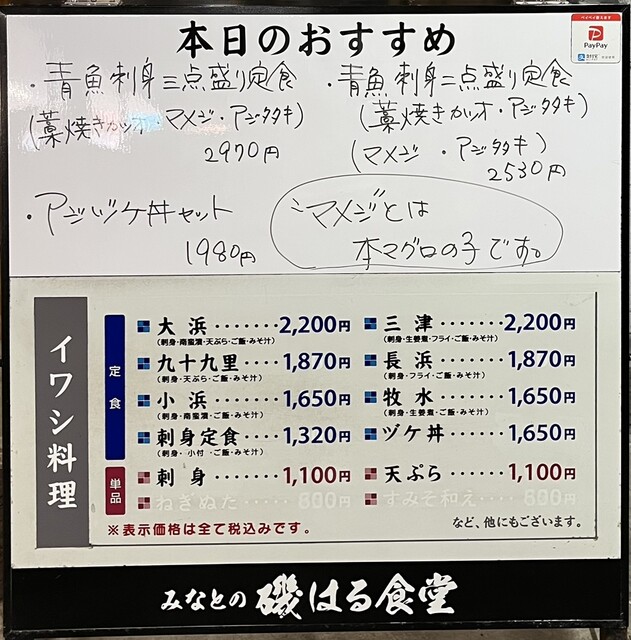 本日のおすすめ
ペイペイ使えます
PayPay
・青魚刺身三点盛り定食
(藁焼きカツオ・マメジ・アジタタキ)
2970円
・青魚刺身二点盛り定食
(藁焼きカツオ・アジタタキ)
(マメジ・アジタタキ)
2530円
・アジヅケ丼セット
1980円
マメジとは
本マグロの子です。
イワシ料理
定食
大浜·······2,200円
(刺身・南蛮漬・天ぷら・ご飯・みそ汁)
九十九里····1,870円
(刺身・天ぷら・ご飯・みそ汁)
小浜·······1,650円
(刺身・南蛮漬・ご飯・みそ汁)
刺身定食····1,320円
(刺身・小付・ご飯・みそ汁)
三津·······2,200円
(刺身・生姜煮・フライ・ご飯・みそ汁)
長浜·······1,870円
(刺身・フライ・ご飯・みそ汁)
牧水·······1,650円
(刺身・生姜煮・ご飯・みそ汁)
ヅケ丼·····1,650円
単品
刺身·······1,100円
ねぎぬた·····800円
天ぷら·····1,100円
すみそ和え····800円
※表示価格は全て税込みです。
など、他にもございます。
みなとの 磯はる食堂